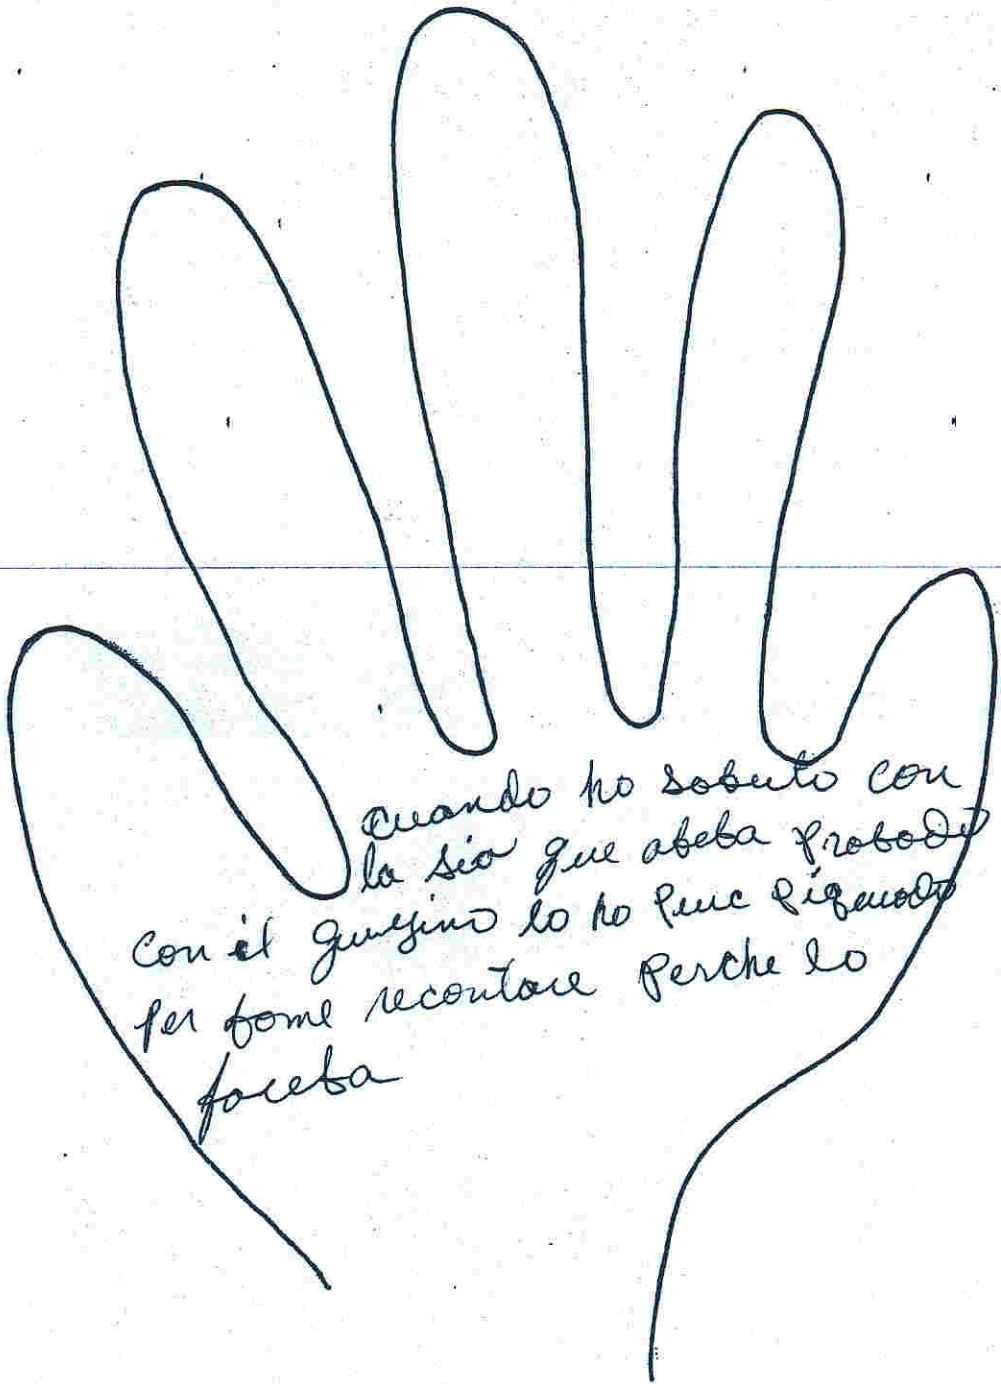 cuando ho sabuto con
la sia que abeba probado
con il guyino lo ho puc piqeuado
per fome recontare perche lo
faceba